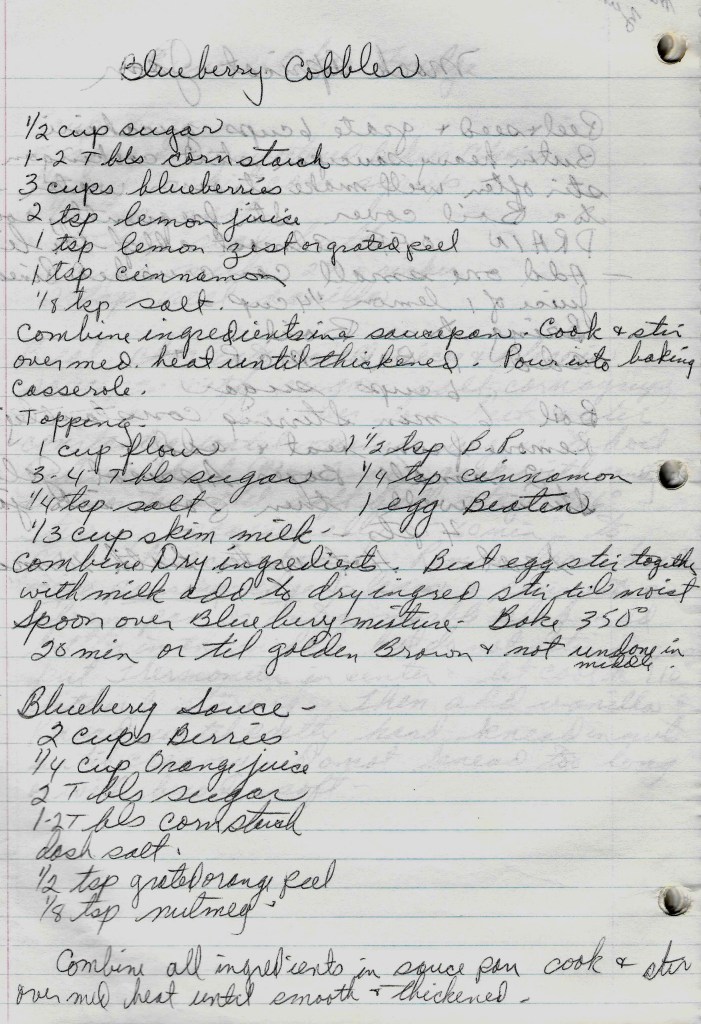 Blueberry Cobbler
1/2 cup sugar
1-2 Tbls cornstarch
3 cups blueberries
2 tsp lemon juice
1 tsp lemon zest or grated peel
1 tsp cinnamon
1/8 tsp salt.
Combine ingredients in a saucepan. Cook & stir
over med. heat until thickened. Pour into baking
casserole.
Topping-
1 cup flour 1 1/2 tsp B.P.
3-4 Tbls sugar 1/4 tsp cinnamon
1/4 tsp salt. 1 egg Beaten
1/3 cup skim milk -
Combine Dry ingredients. Beat egg stir together
with milk add to dry ingred stir til moist
Spoon over Blueberry mixture - Bake 350°
20 min or til golden Brown & not undone in
middle.
Blueberry Sauce -
2 cups Berries
1/4 cup Orange juice
2 Tbls sugar
1-2 Tbls cornstarch
dash salt.
1/2 tsp grated orange peel
1/8 tsp nutmeg -
Combine all ingredients in sauce pan cook & stir
over med heat until smooth & thickened -